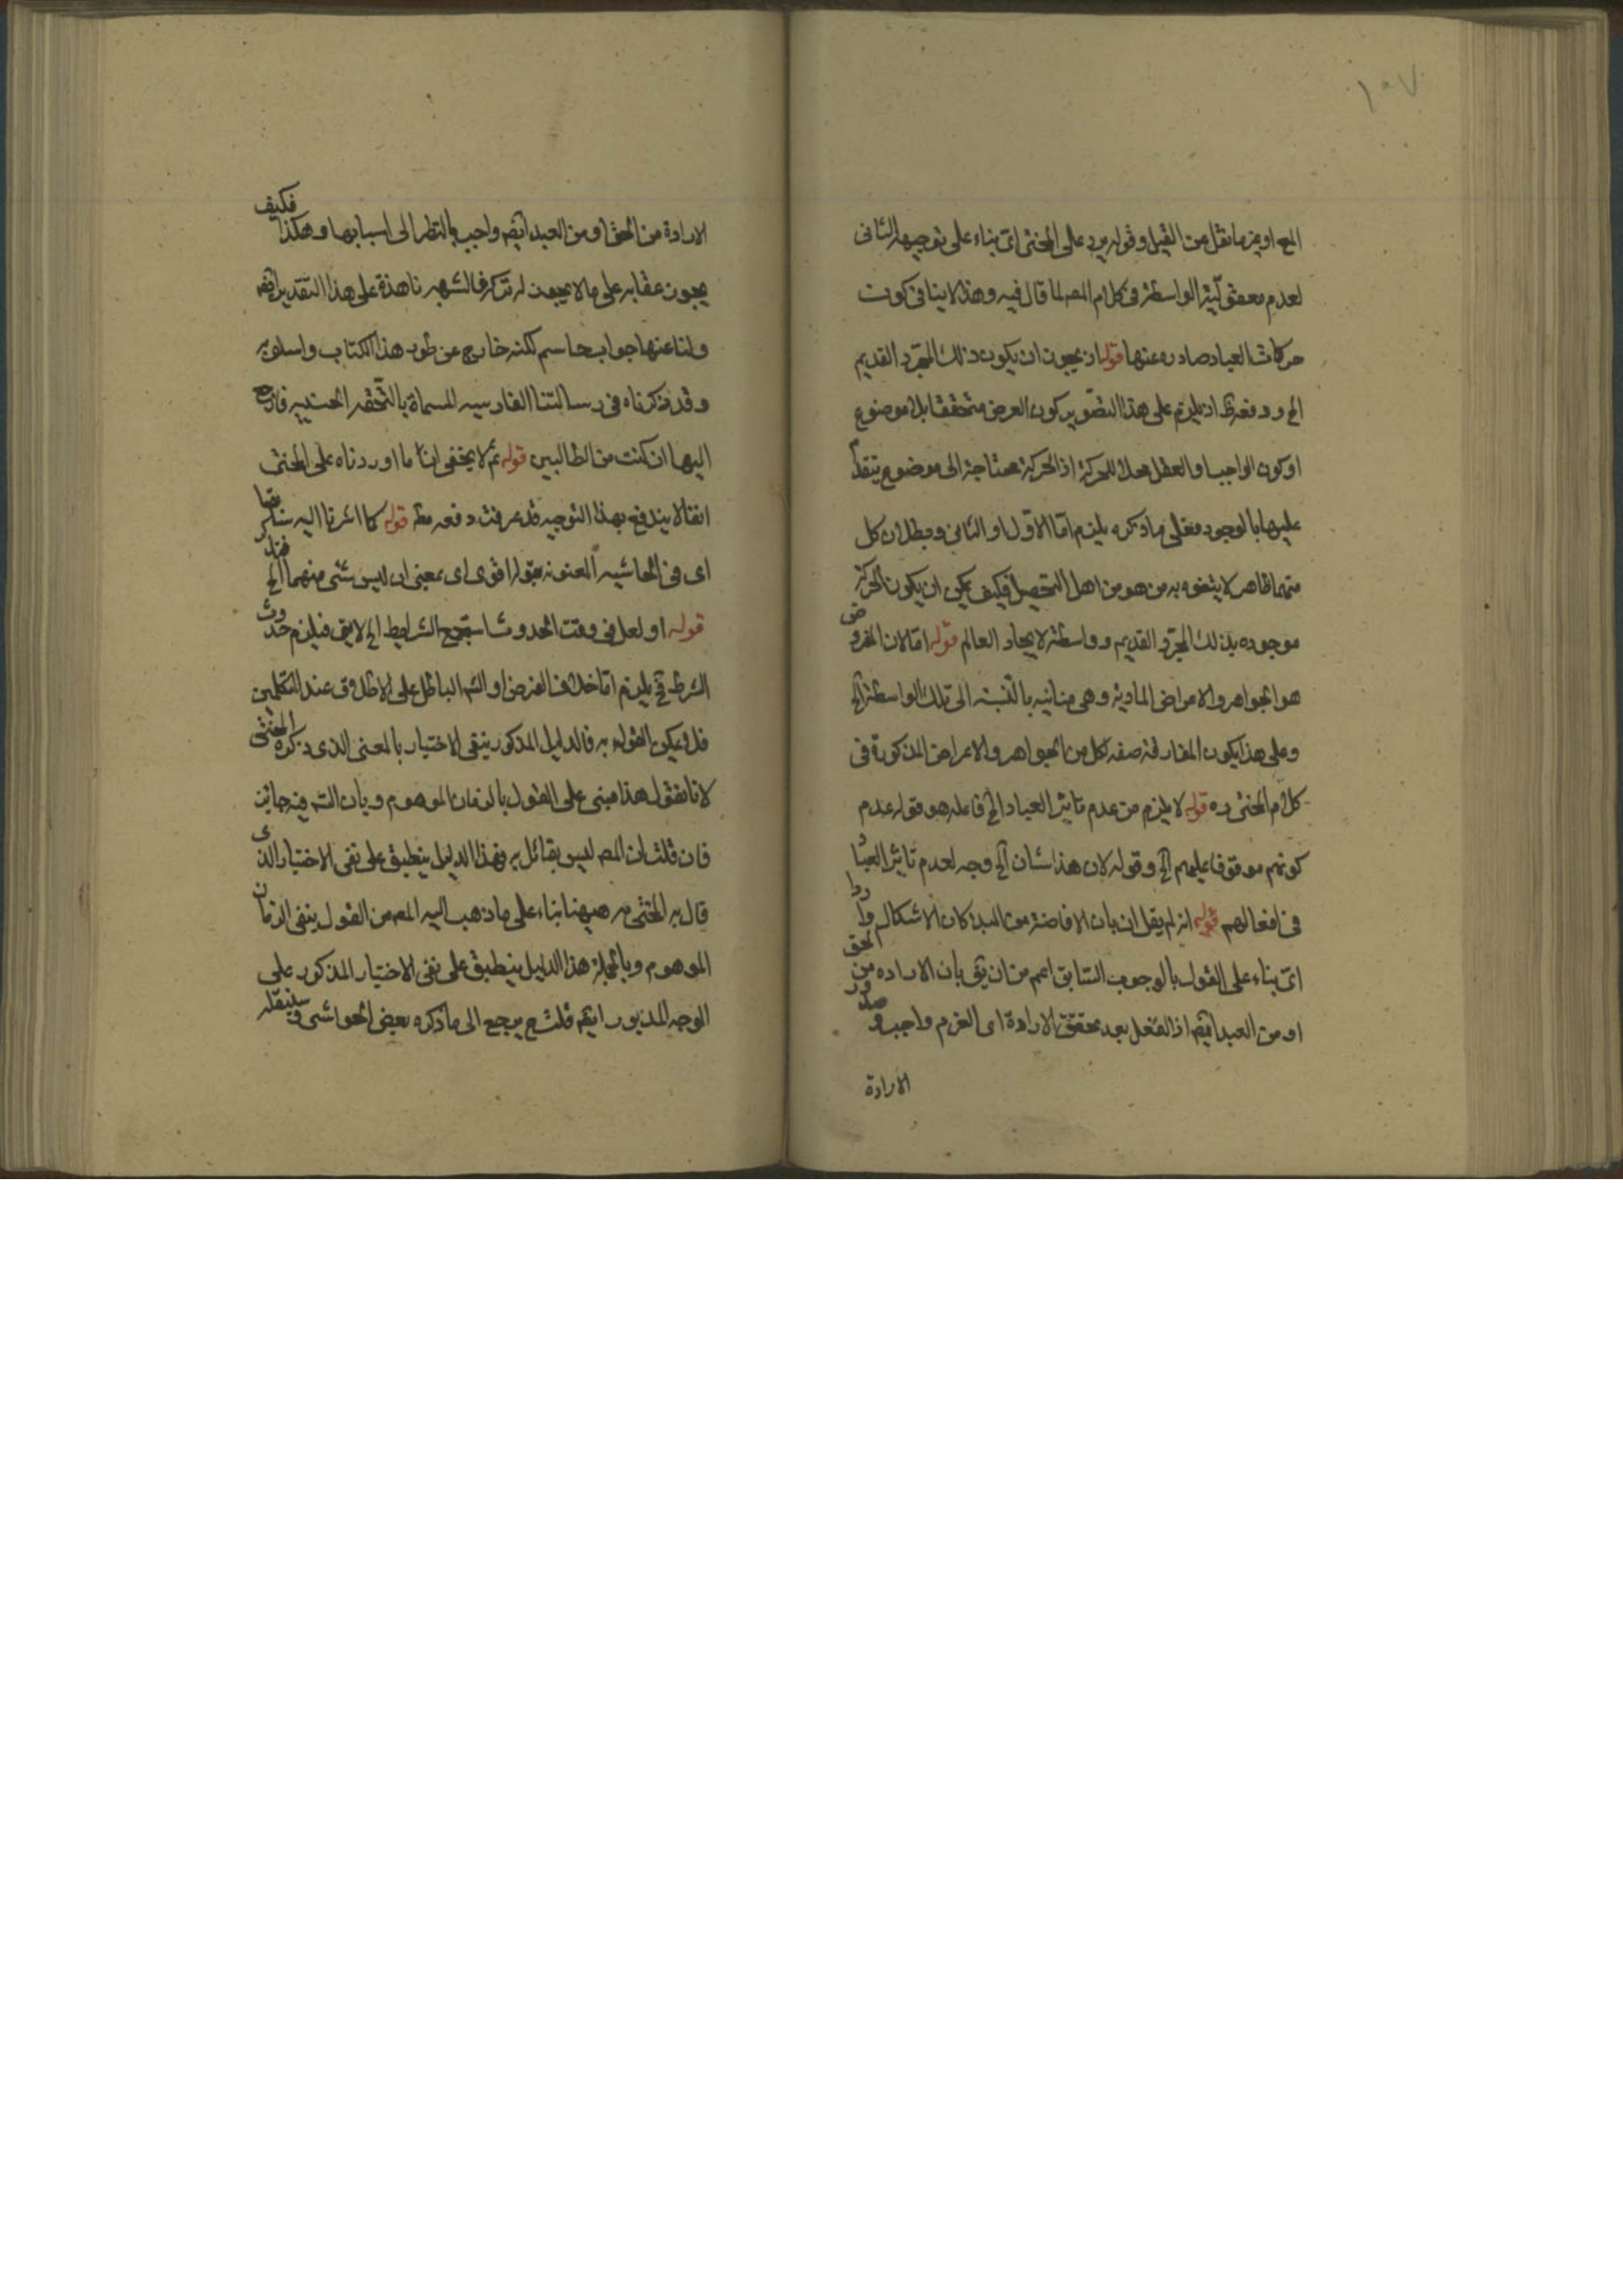 ١٠٧
المع او يز ما نقل من القيل و قوله يرد على المحشى اى بناء على توجيهه الثانى
لعدم معقوليّة الواسطة فى كلام المصـ لما قال فيه وهذا لا ينافى كون
حركات العباد صادره عنها قوله اذ يجوز ان يكون ذلك المجرّد القديم
الخ و دفعه ظ اذ يلزم على هذا التصوير كون العرض متحققا بلا موضوع
او كون الواجب او العقل محلا للحركة اذ الحركة محتاجة الى موضوع يتقدم
عليها بالوجود فعلى ما ذكره يلزم امّا الاوّل او الثانى و بطلان كل
منهما ظاهر لا يتفوه به من هو من اهل التحصيل فكيف يمكن ان يكون الحركة
موجوده بذلك المجرّد القديم و واسطة لايجاد العالم قوله امّا لان المفروض
هو الجواهر والاعراض المادية و هى متأنيه بالنسبة الى تلك الواسطة الخ
وعلى هذا يكون المفارقة صفة لكل من الجواهر والاعراض المذكورة فى
كلام المحشى ره قوله لا يلزم من عدم تاثير العباد الخ فاعله هو قوله عدم
كونهم موقوفا عليهم الخ وقوله لان هذا شان الخ وجه لعدم تاثير العباد
فى افعالهم قوله انه لم يقل ان بان الافاضة من المبدء كان الاشكال واردا
اى بناء على القول بالوجوب السّابق اعم من ان يق بان الاراده من الحق
او من العبد ايضا اذ الفعل بعد تحقّق الارادة اى العزم واجب و صدور
الارادة
الارادة من الحق او من العبد ايضا واجب بالنظر الى اسبابها و هكذا فكيف
يجوز عقابه على ما لا يجوز له تركه فالشبهه ناهذة على هذا التقدير ايضا
ولنا عنها جواب حاسم لكنه خارج عن طور هذا الكتاب و اسلوبه
وقد ذكرناه فى رسالتنا الفارسيه المسماة بالتّحفه الحسنيه فارجع
اليها ان كنت من الطالبين قوله ثم لا يخفى انّ ما اوردناه على المحشى
انفا لا يندفع بهذا التوجيه قد عرفت دفعه قوله كما اشرنا اليه سابقا
اى فى الحاشيه المعنونه بقوله اقوى اى بمعنى ان ليس شئى منهما الخ
قوله او لعل فى وقت الحدوث استجمع الشرايط الخ لايق فيلزم حدوث
الشرط فح يلزم امّا خلاف الفرض او التسـ الباطل على الاطلاق عند المتكلمين
فلا يمكن القول به فالدليل المذكور ينفى الاختيار بالمعنى الذى ذكره المحشى
لانا نقول هذا مبنى على القول بالزمان الموهوم و بان التسـ فيه جائز
فان قلت ان المصـ ليس بقائل به فهذا الدليل ينطبق على نفى الاختيار الذى
قال به المحشى ره ههنا بناء على ما ذهب اليه المصـ من القول بنفى الزمان
الموهوم و بالجملة هذا الدليل ينطبق على نفى الاختيار المذكور على
الوجه المذبور ايضا قلت ح يرجع الى ما ذكره بعض الحواشى و سننقله